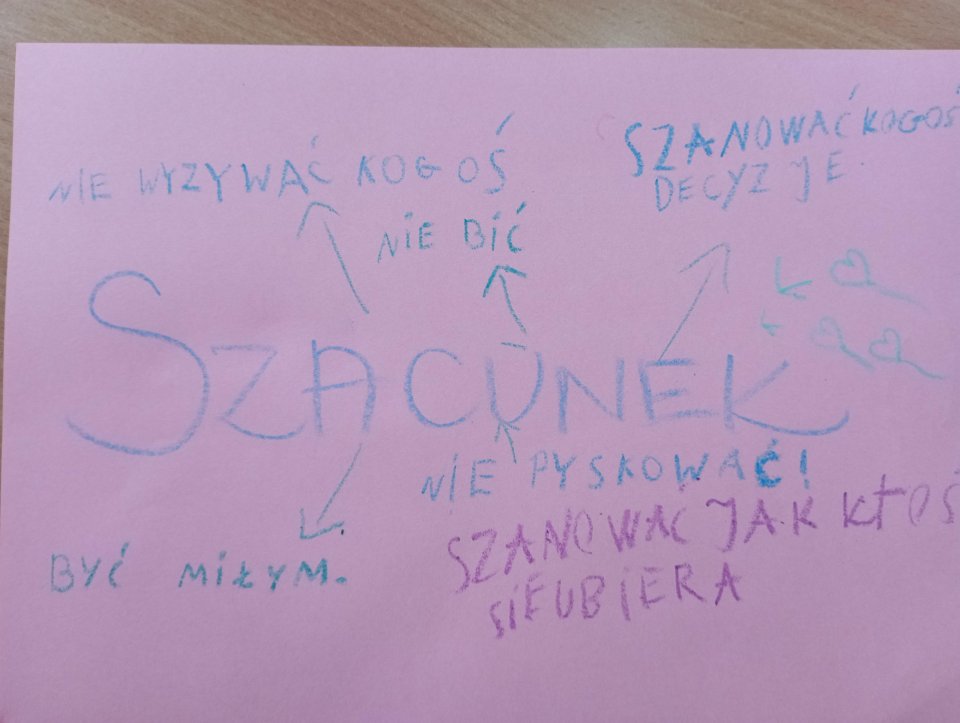 NIE WYZYWAĆ KOGOŚ
SZANOWAĆ KOGOŚ
DECYZJE.
NIE BIĆ
SZACUNEK
NIE PYSKOWAĆ!
BYĆ MIŁYM.
SZANOWAĆ JAK KTOŚ
SIE UBIERA